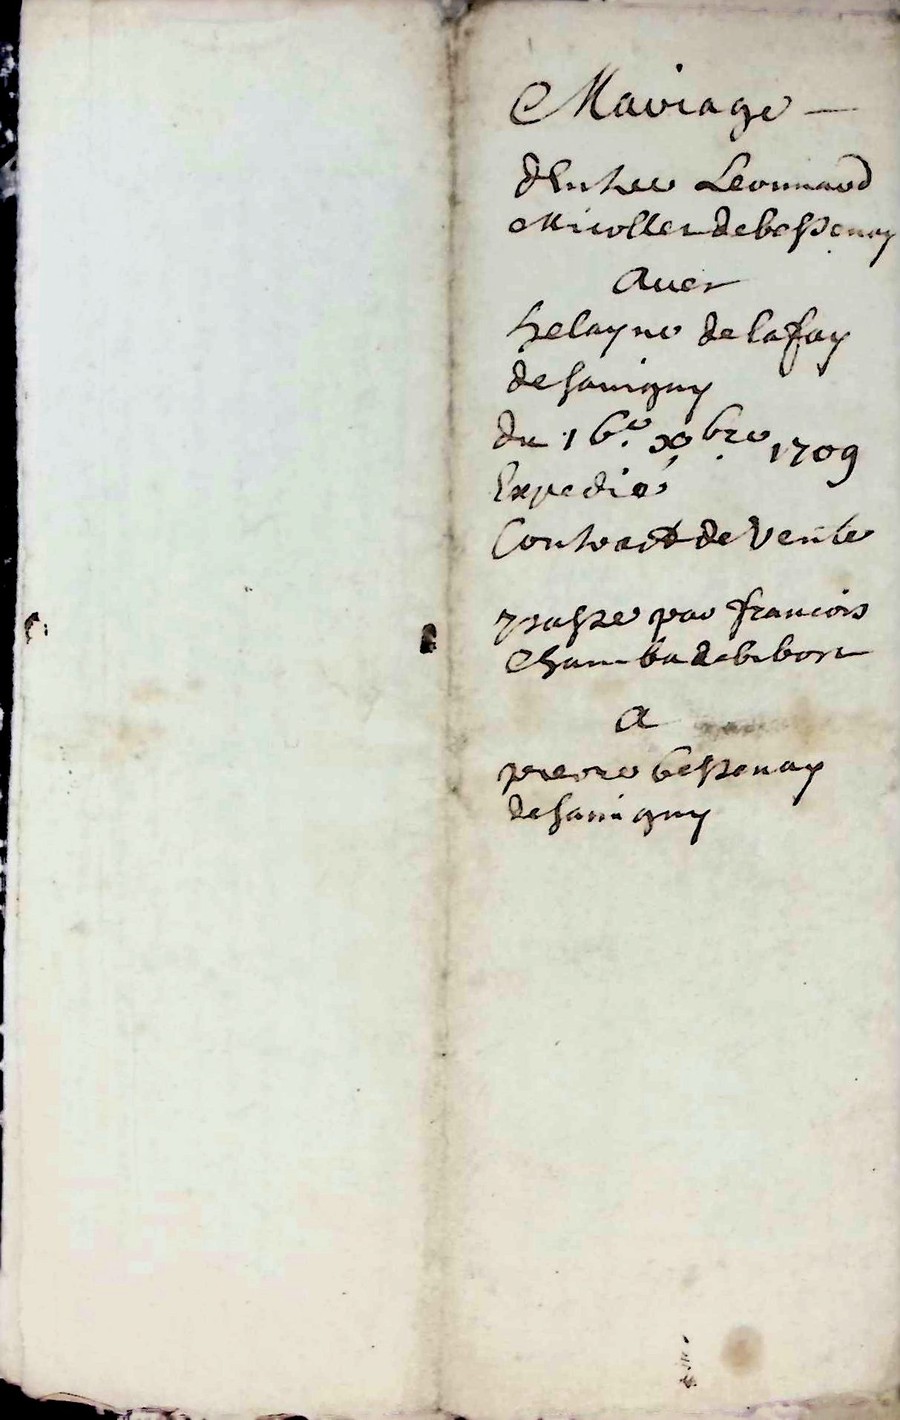 Mariage
d'Entre Leonnard
Micollet de bessenay
Avec
helayne de lafay
de Savigny
du 16.e xbre 1709
Expedié
Contract de Vente
passe par francois
Chamba de bibost
A
pierre bessenay
de Savigny